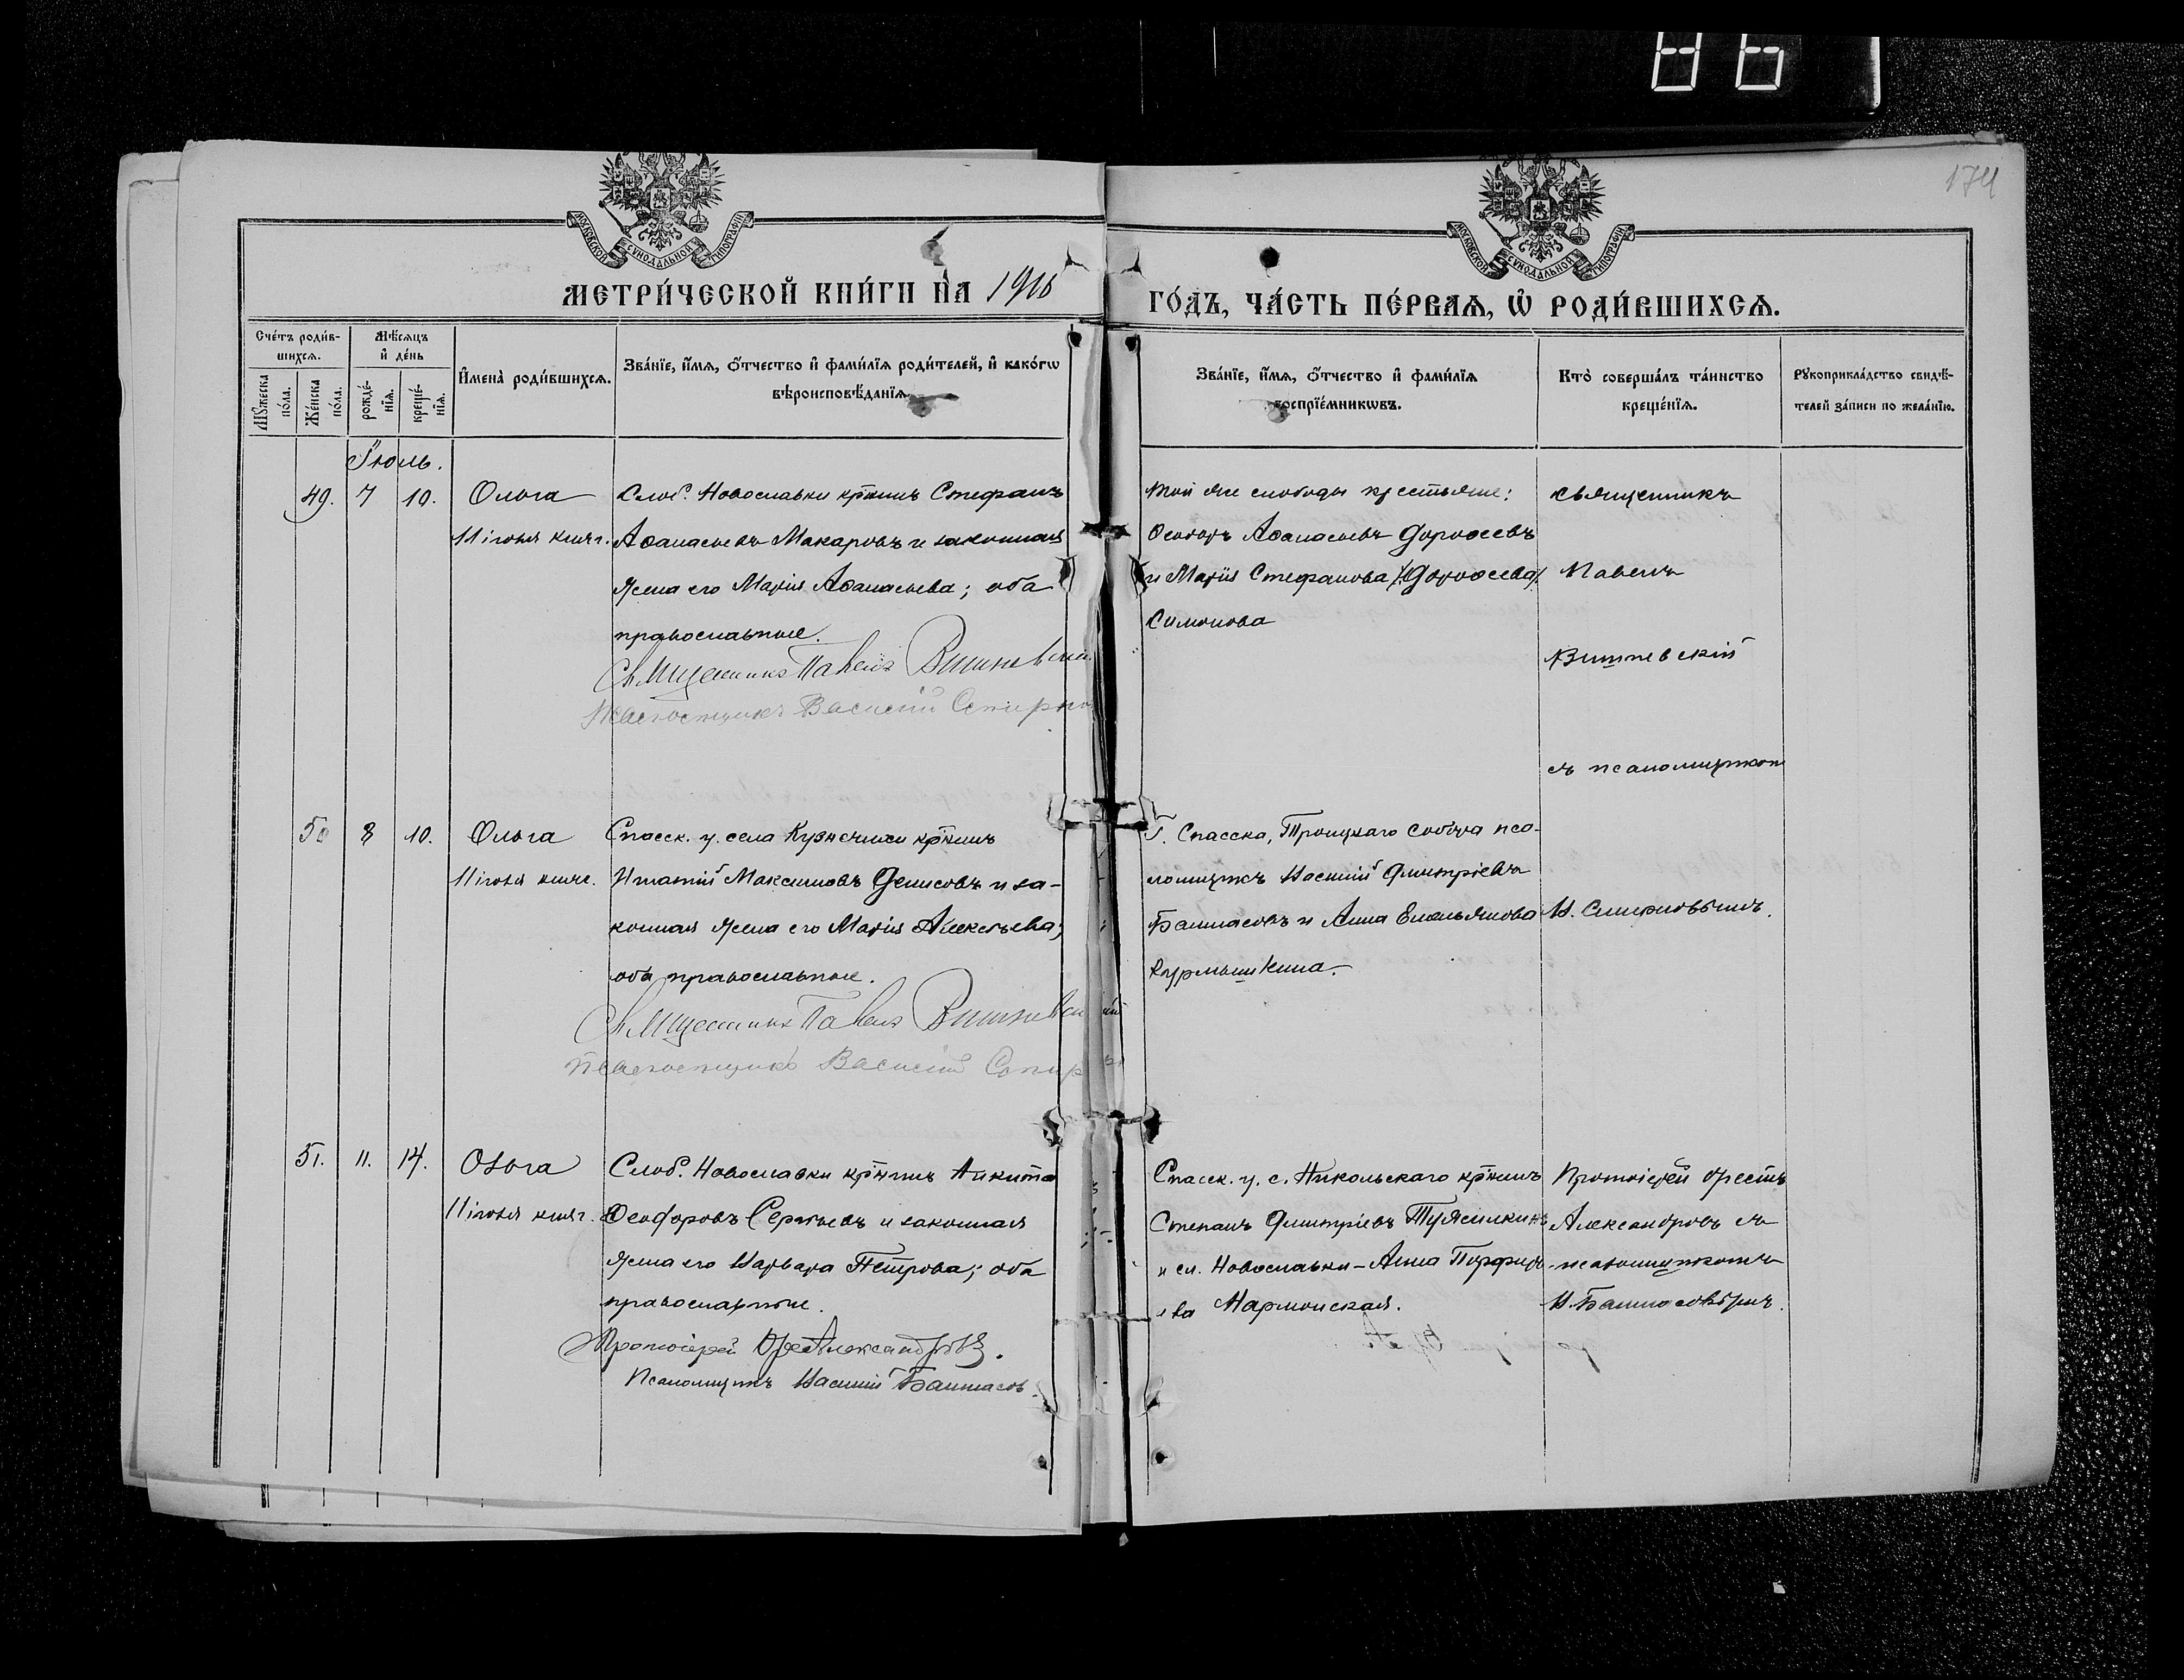 86
174
МОСКОВСКОЙ СѴНОДАЛЬНОЙ ТИПОГРАФІИ
МОСКОВСКОЙ СѴНОДАЛЬНОЙ ТИПОГРАФІИ
МЕТРИ́ЧЕСКОЙ КНИ́ГИ НА 1916
ГО́ДЪ, ЧА́СТЬ ПЕ́РВАѦ, Ѡ҆ РОДИ́ВШИХСѦ.
Сче́тъ роди́в-
шихсѧ.
Мꙋ́жеска
по́ла.
Же́нска
по́ла.
Мѣ́сѧцъ
и҆ де́нь
рожде́-
нїѧ.
креще́-
нїѧ.
И҆мена̀ роди́вшихсѧ.
Зва́нїе, и҆́мѧ, ѻ҆́тчество и҆ фами́лїѧ роди́телей, и҆ како́гѡ
вѣроисповѣ́данїѧ.
Зва́нїе, и҆́мѧ, ѻ҆́тчество и҆ фами́лїѧ
воспрїе́мникѡвъ.
Кто̀ соверша́лъ та́инство
креще́нїѧ.
Рꙋкоприкла́дство свидѣ́-
телей за́писи по жела́нїю.
Іюль.
49. 7 10. Ольга
11 іюля княг.
Слоб. Новославки кр҃нинъ Стефанъ
Аѳанасьевъ Макаровъ и законная
жена его Марія Аѳанасьева; оба
православные.
Священникъ Павелъ Вишневскій
Псаломщикъ Василій
Той же слободы крестьяне:
Ѳеодоръ Аѳанасьевъ Дороѳеевъ
и Марія Стефанова /Дороѳеева/
Симонова
Священникъ
Павелъ
Вишневскій
съ псаломщиком
50 8 10. Ольга
11 іюля княг.
Спасск. у. села Кузнечихи кр҃нинъ
Игнатій Максимовъ Денисовъ и за-
конная жена его Марія Алексѣева;
оба православные.
Священникъ Павелъ Вишневскій
Псаломщикъ Василій
Г. Спасска, Троицкаго собора пса-
ломщикъ Василій Димитріевъ
Башмасовъ и Анна Емельянова
Курмышкина.
В. Смирновымъ.
51. 11. 14. Ольга
11 іюля княг.
Слоб. Новославки кр҃нинъ Никита
Ѳеодоровъ Сергѣевъ и законная
жена его Варвара Петрова; оба
православные.
Протоіерей Орестъ Александровъ.
Псаломщикъ Василій Башмасовъ.
Спасск. у. с. Никольскаго кр҃нинъ
Степанъ Димитріевъ Тужилкинъ
и сл. Новославки - Анна Порфирь-
ева Мармонская.
Протоіерей Орестъ
Александровъ съ
псаломщикомъ
В. Башмасовымъ.